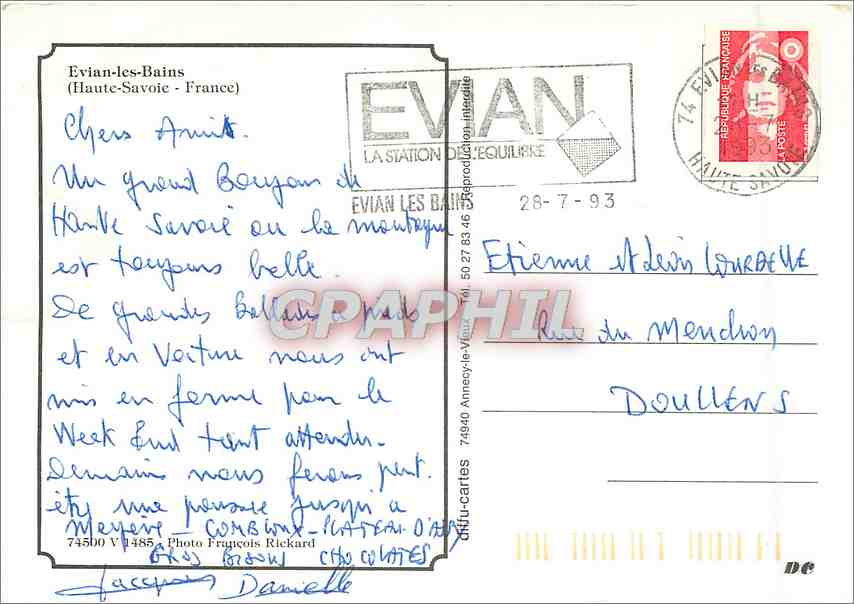 Evian-les-Bains
(Haute-Savoie - France)
Chers Amis.
Un grand Bonjour de
Haute Savoie ou la montagne
est toujours belle.
De grandes Ballades a pieds
et en Voiture nous ont
mis en forme pour le
Week End tant attendu.
Demain nous ferons peut.
être une poussée jusqu'a
Megève - COMBLOUX - PLATEAU D'ASSY
74500 V 1485 - Photo François Rickard
GROS BISOUS CHOCOLATES
Jacques Danielle
EVIAN
LA STATION DE L'EQUILIBRE
EVIAN LES BAINS
28-7-93
74 EVIAN LES BAINS
1993
HAUTE SAVOIE
REPUBLIQUE FRANÇAISE
LA POSTE
CPAPHIL
Etienne et
Rue du
DOULLENS
didju-cartes 74940 Annecy-le-Vieux - Tél. 50 27 83 46 - Reproduction interdite
DC